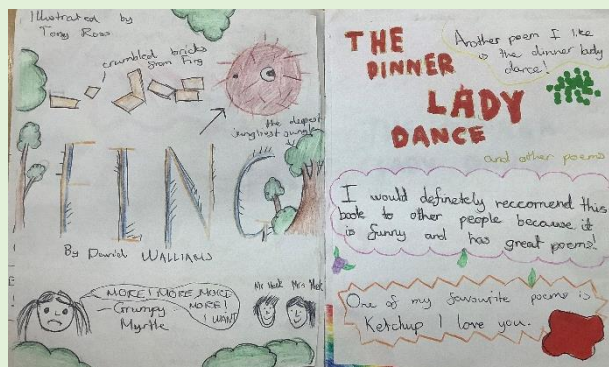 Illustrated by
Tony Ross
crumbled bricks
from Fing
the deepest
jungliest jungle
FING
By David WALLIAMS
MORE! MORE, MORE
MORE!
I WANT
Grumpy
Myrtle
Mr Meek
Mrs Meek
THE
DINNER
LADY
DANCE
Another poem I like
is the dinner lady
dance!
and other poems
I would definetely reccomend this
book to other people because it
is funny and has great poems!
One of my favourite poems is
Ketchup I love you.